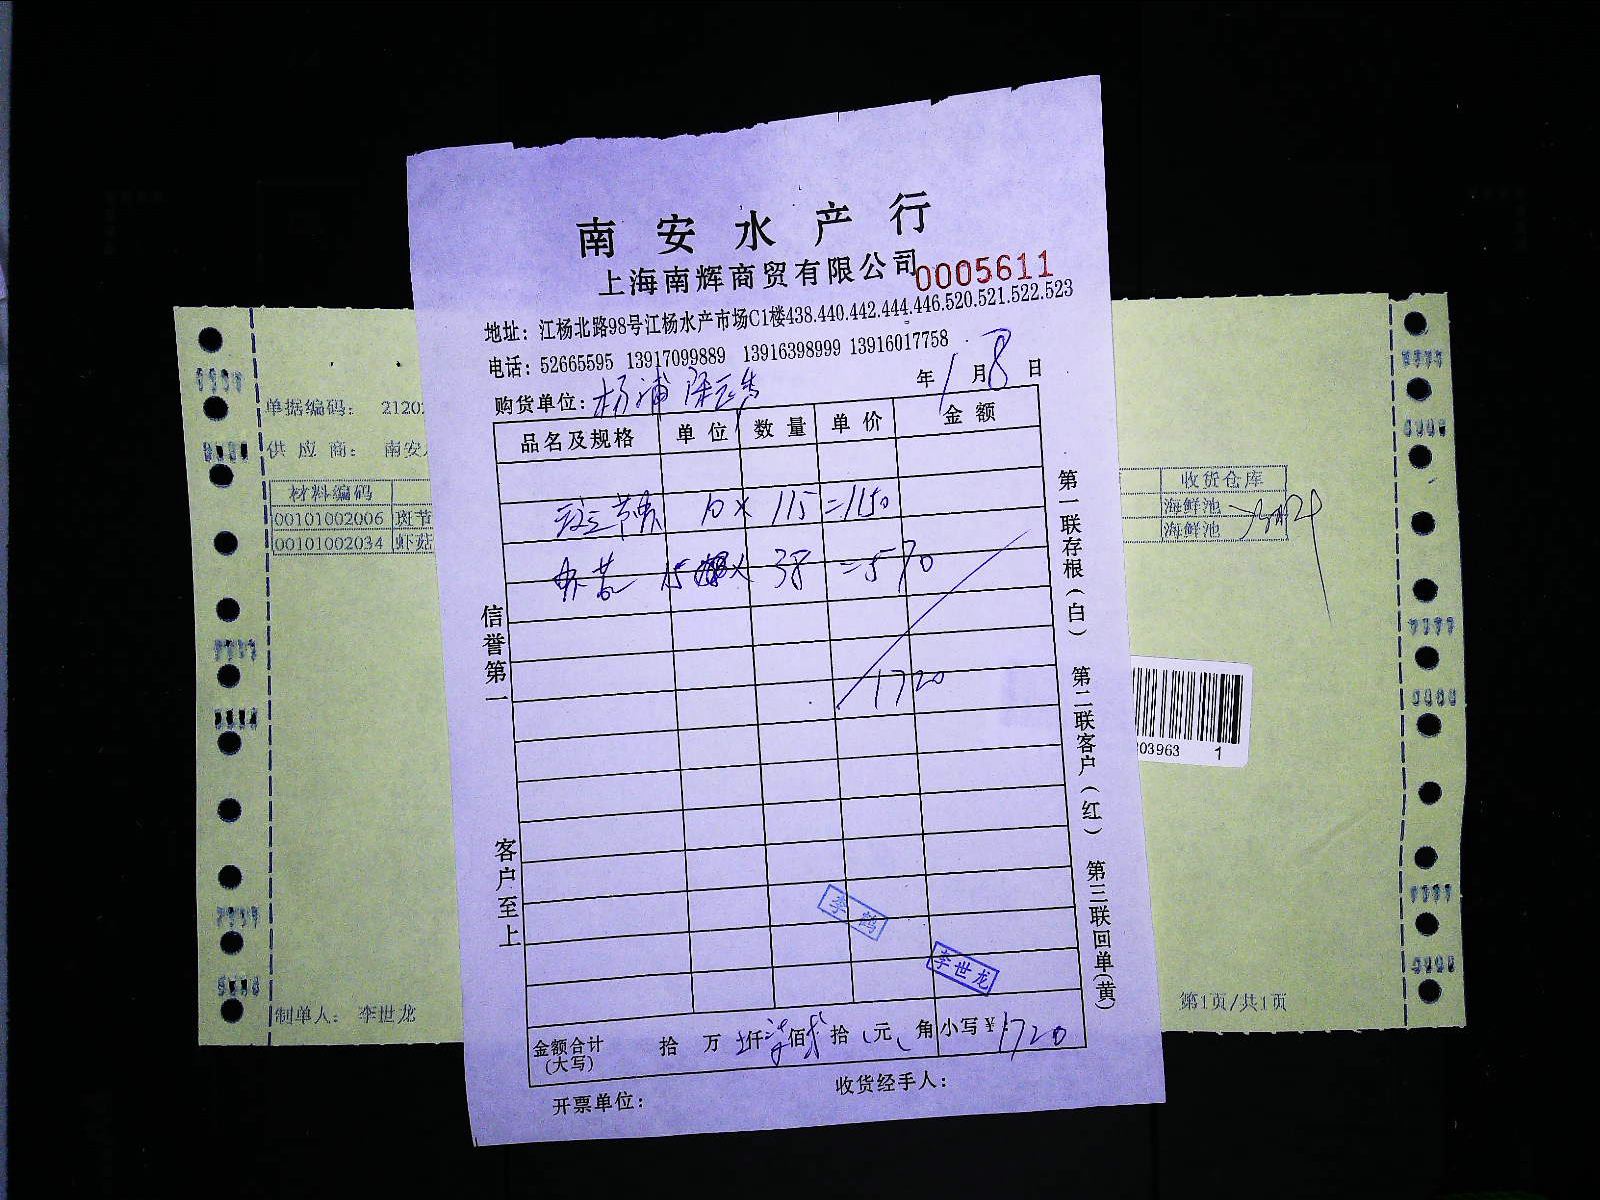 南安水产行
上海南辉商贸有限公司
0005611
地址：江杨北路98号江杨水产市场C1楼438.440.442.444.446.520.521.522.523
电话：52665595 13917099889 13916398999 13916017758
购货单位：杨浦 年1月8日
品名及规格 单位 数量 单价 金额
斑节 10 × 115 =1150
虾菇 15 × 38 =570
1720
信誉第一
客户至上
第一联存根（白） 第二联客户（红） 第三联回单（黄）
李
李世龙
金额合计（大写） 拾 万 壹仟柒佰贰拾 元 角 小写￥：1720
开票单位： 收货经手人：
单据编码： 2120
供 应 商： 南安
材料编码
00101002006 斑节
00101002034 虾菇
制单人： 李世龙
收货仓库
海鲜池
海鲜池
03963 1
第1页/共1页